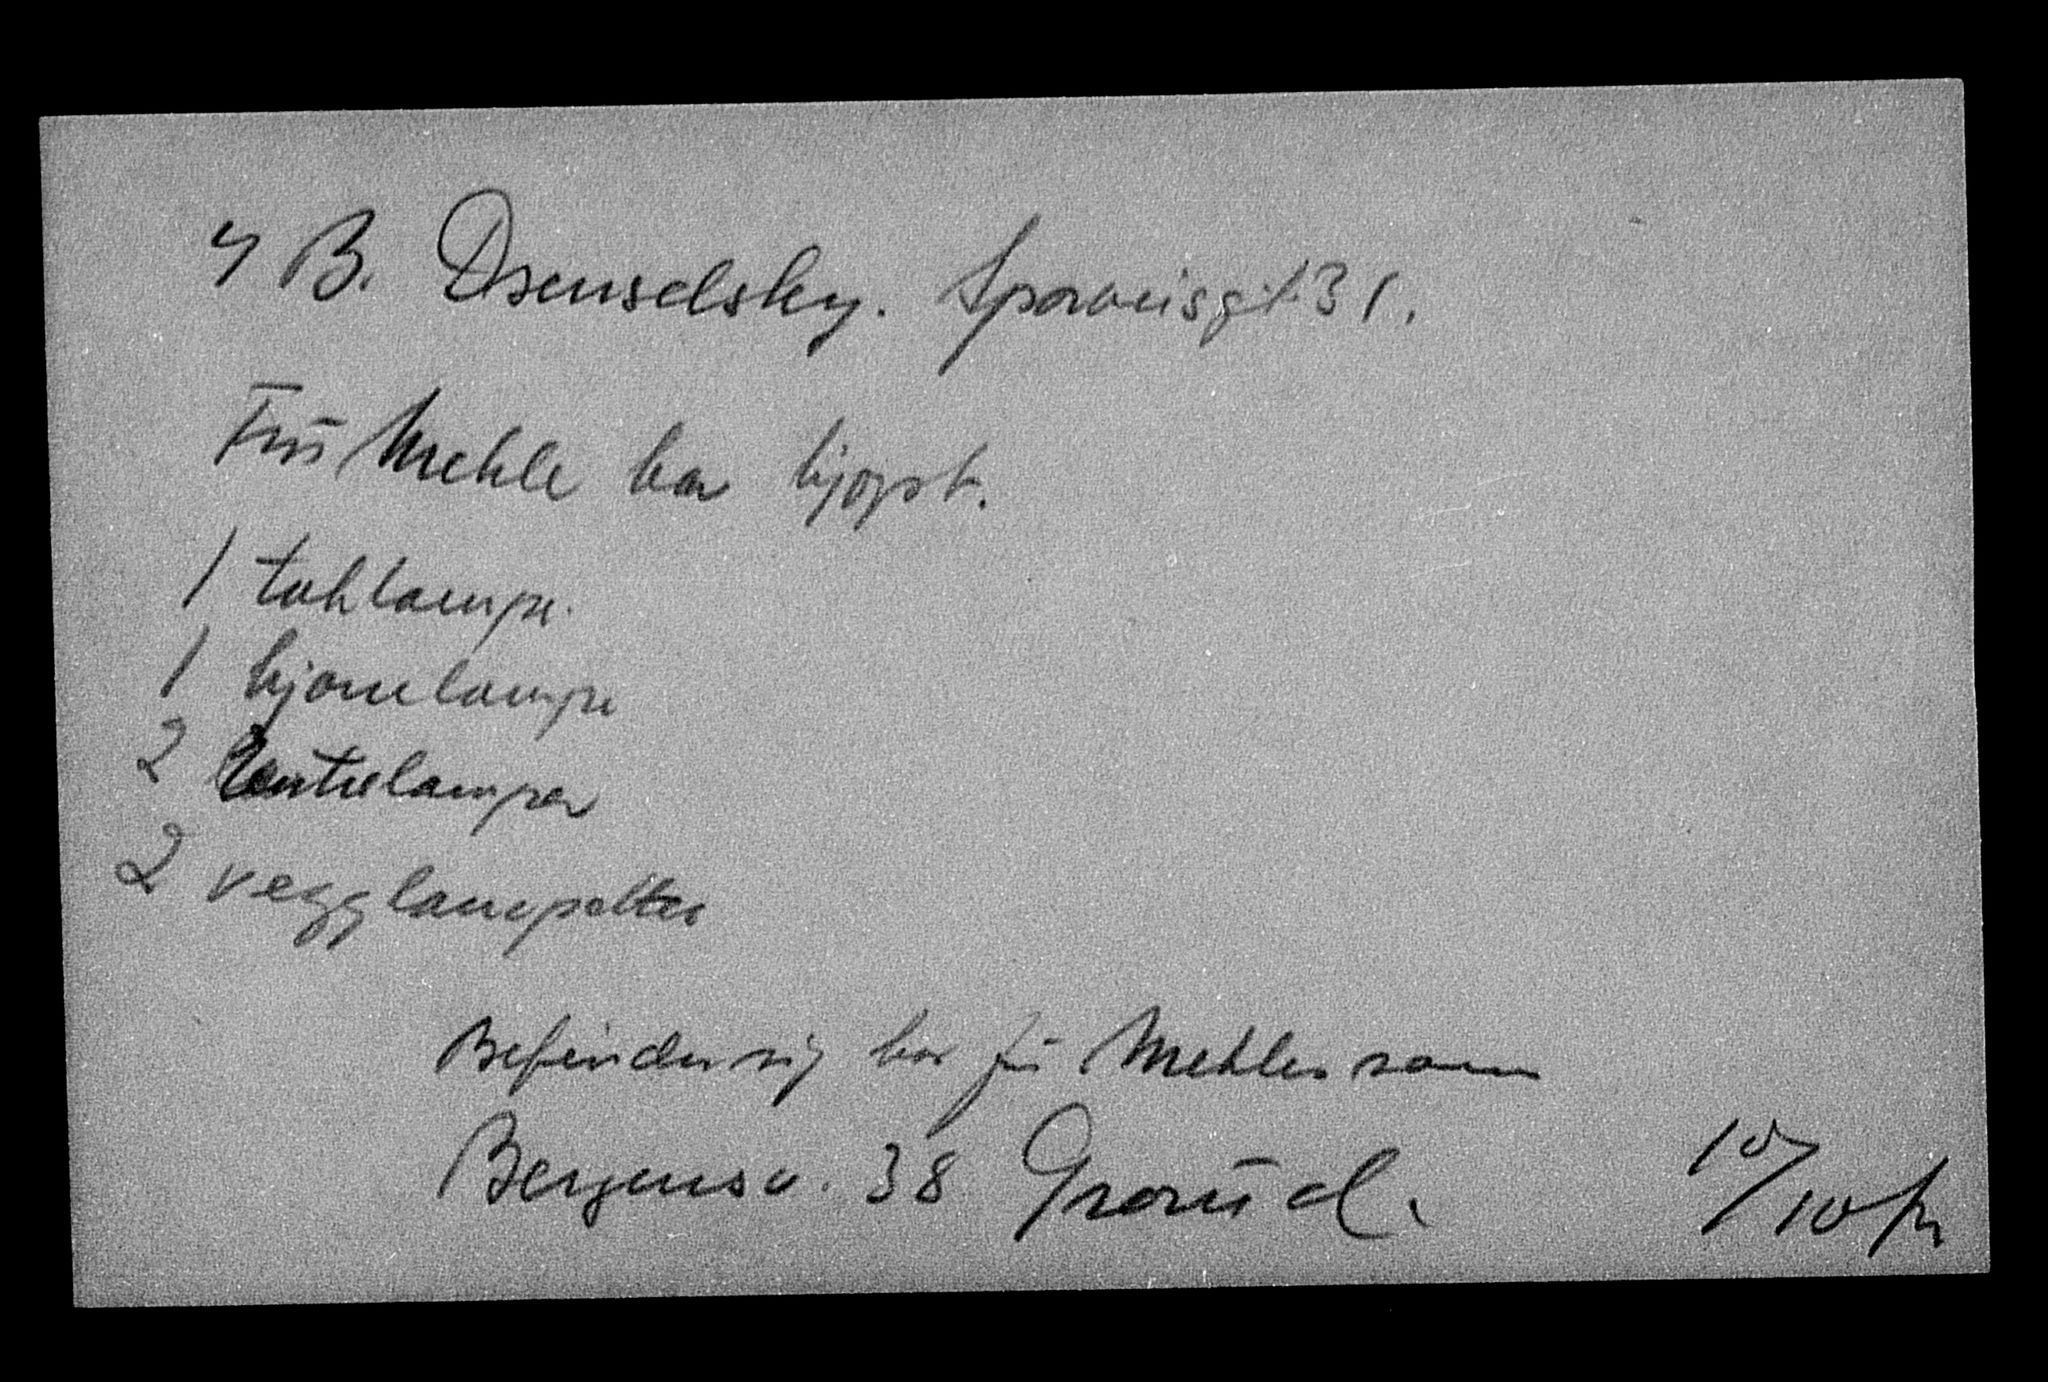 4 B. Dsenselsky. Sporveisgt. 31.
Frü Mehle har kjøpst.
1 taklampe.
1 kjønelampe
2 Entrelamper
2 vegglampetter
Befinder sig hos frü Mehle som
Bergensv. 38 Grorüd.
10/10